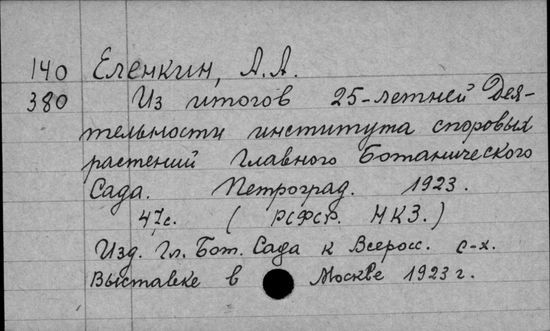 140 Еленкин, А.А.
380 Из итогов 25-летней Дея-
тельности института споровых
растений Главного Ботанического
Сада. Петроград. 1923.
47с. (РСФСР. НКЗ.)
Изд. Гл. Бот. Сада к Всеросс. с-х.
Выставке в Москве 1923 г.